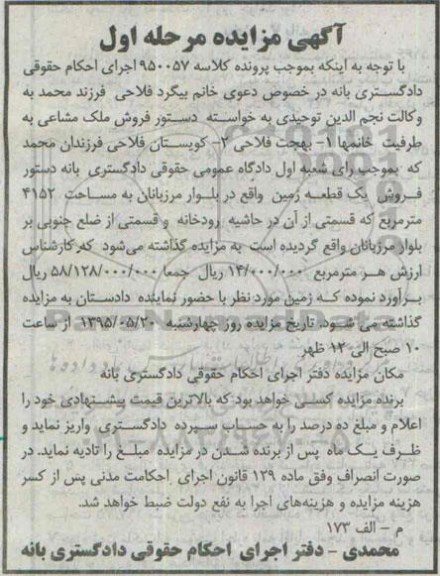 آگهی مزایده مرحله اول
با توجه به اینکه بموجب پرونده کلاسه ۹۵۰۰۵۷ اجرای احکام حقوقی
دادگستری بانه در خصوص دعوی خانم بیگرد فلاحی فرزند محمد به
وکالت نجم الدین توحیدی به خواسته دستور فروش ملک مشاعی به
طرفیت خانمها ۱- بهجت فلاحی ۲- کویستان فلاحی فرزندان محمد
که بموجب رای شعبه اول دادگاه عمومی حقوقی دادگستری بانه دستور
فروش یک قطعه زمین واقع در بلوار مرزبانان به مساحت ۴۱۵۲
مترمربع که قسمتی از آن در حاشیه رودخانه و قسمتی از ضلع جنوبی بر
بلوار مرزبانان واقع گردیده است به مزایده گذاشته می‌شود که کارشناس
ارزش هر مترمربع ۱۴/۰۰۰/۰۰۰ ریال جمعا ۵۸/۱۲۸/۰۰۰/۰۰۰ ریال
برآورد نموده که زمین مورد نظر با حضور نماینده دادستان به مزایده
گذاشته می شود. تاریخ مزایده روز چهارشنبه ۱۳۹۵/۰۵/۲۰ از ساعت
۱۰ صبح الی ۱۲ ظهر
مکان مزایده دفتر اجرای احکام حقوقی دادگستری بانه
برنده مزایده کسی خواهد بود که بالاترین قیمت پیشنهادی خود را
اعلام و مبلغ ده درصد را به حساب سپرده دادگستری واریز نماید و
ظرف یک ماه پس از برنده شدن در مزایده مبلغ را تادیه نماید. در
صورت انصراف وفق ماده ۱۲۹ قانون اجرای احکامت مدنی پس از کسر
هزینه مزایده و هزینه‌های اجرا به نفع دولت ضبط خواهد شد.
م - الف ۱۷۳
محمدی - دفتر اجرای احکام حقوقی دادگستری بانه